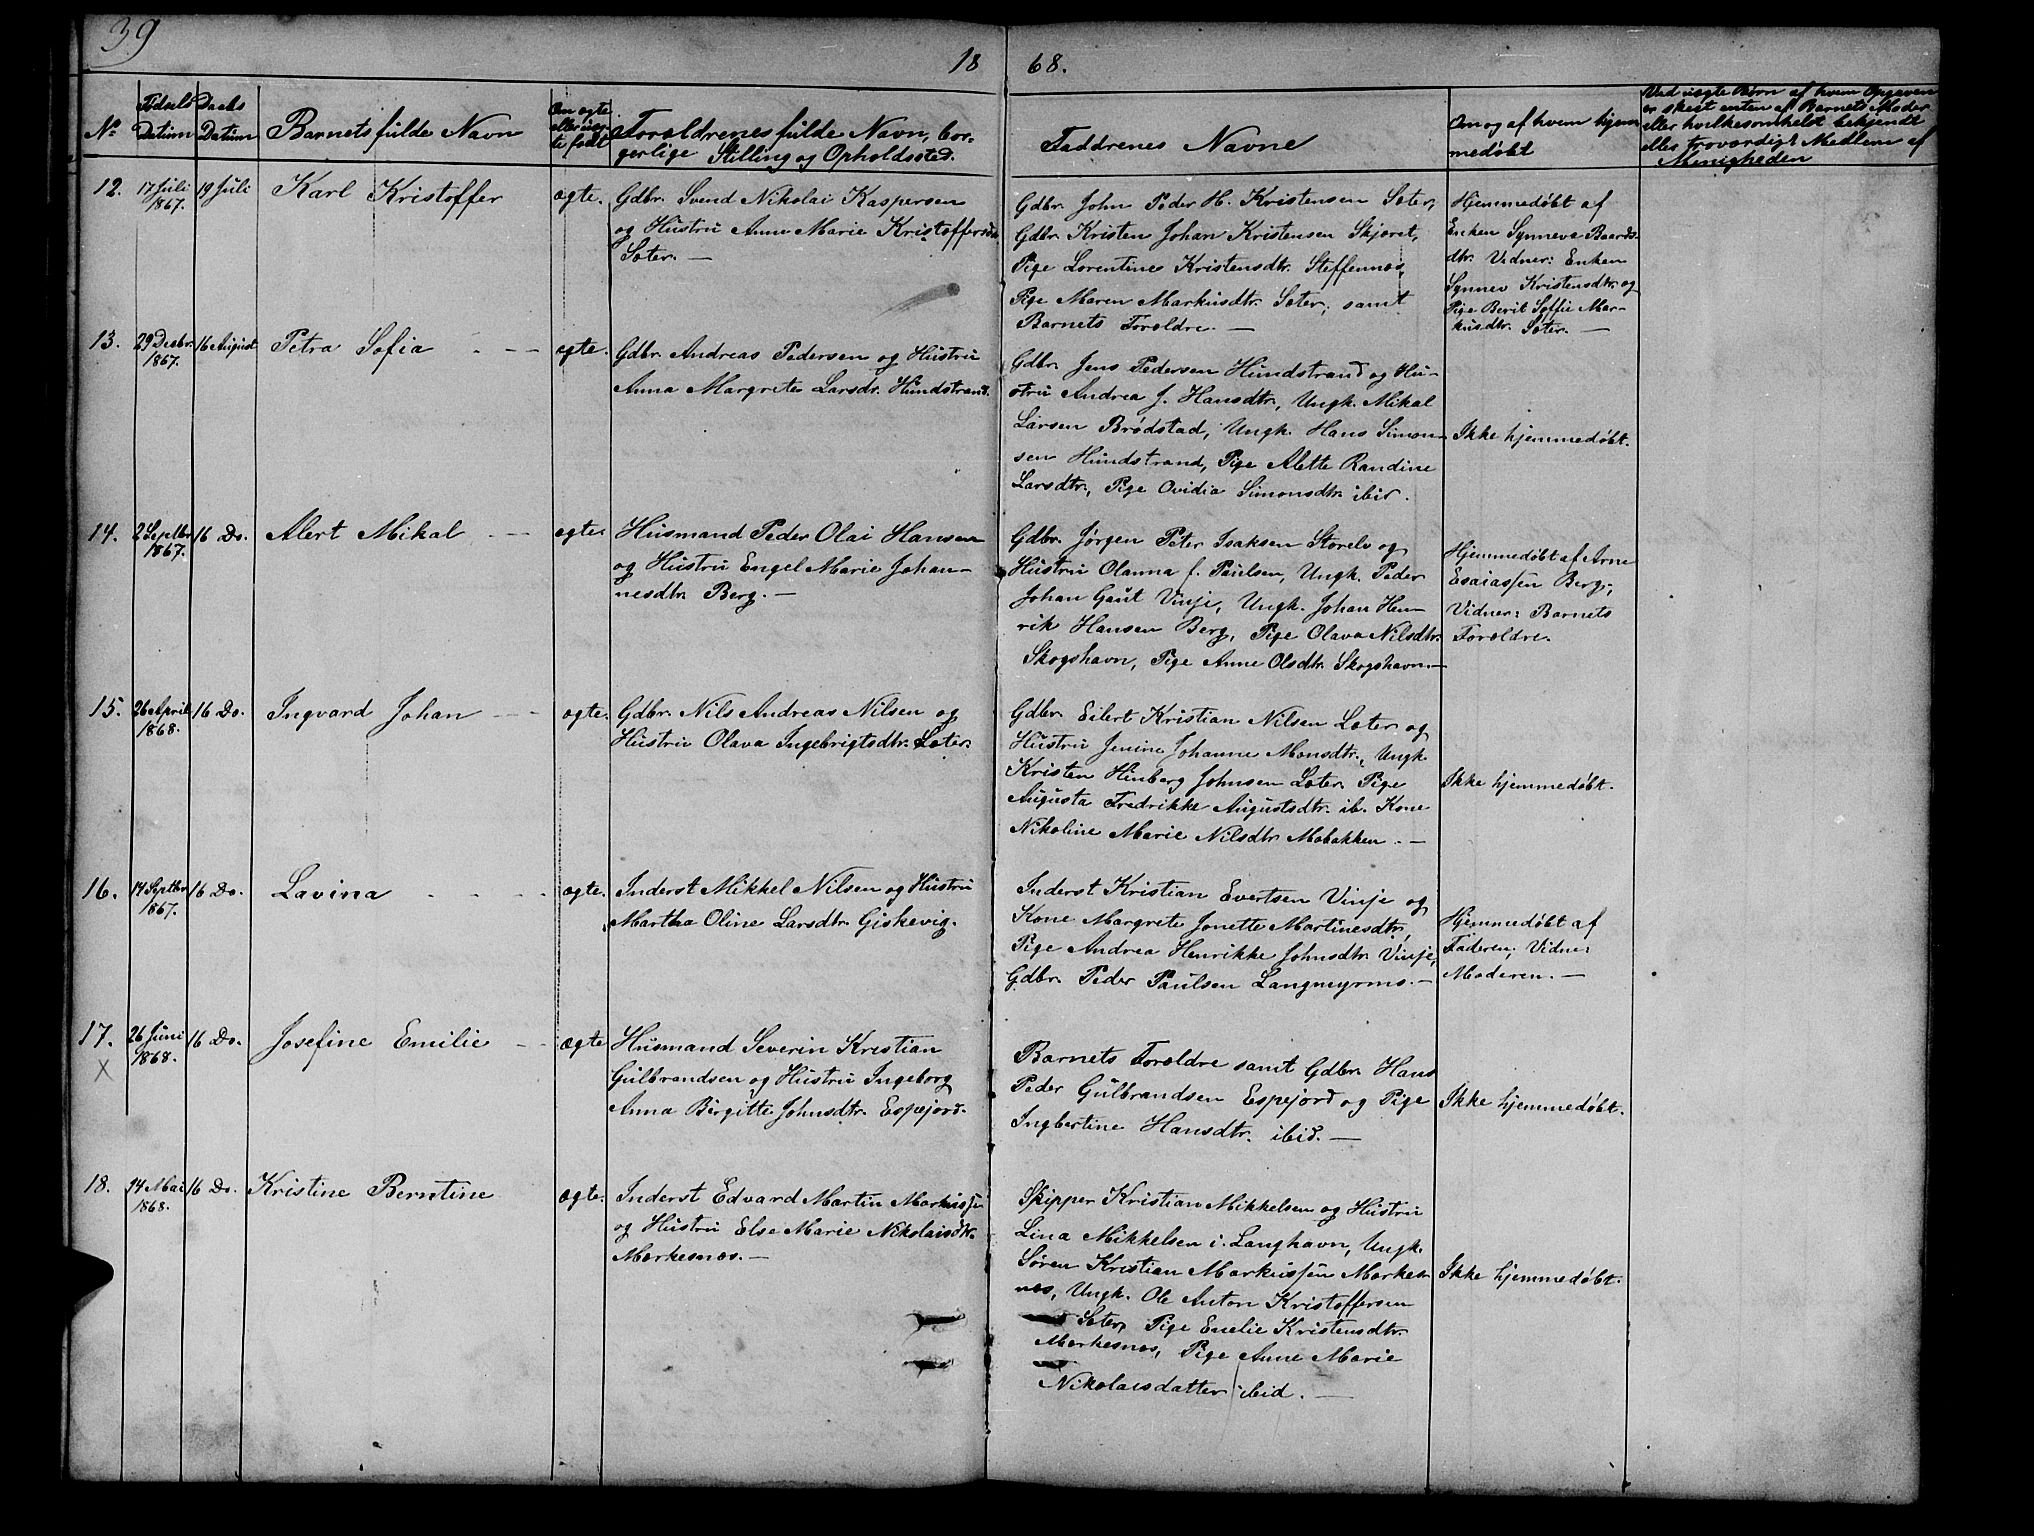 39
18 68.
No
Fødsels Datum
Daabs Datum
Barnets fulde Navn
Om ægte eller uæg-
te født
Forældrenes fulde Navn, bor-
gerlige Stilling og Opholdssted.
Faddrenes Navne
Om og af hvem hjem
medøbt
Ved uægte Børn af hvem Opgaven
er skeet enten af Barnets Moder
eller hvilkesomhelst bekjendt
eller troværdigt Medlem af
Menigheden
12. 17 Juli 1867. 19 Juli Karl Kristoffer ægte.
Gdbr. Svend Nikolai Kaspersen
og Hustru Anne Marie Kristoffersdtr
Sæter. —
Gdbr. John Peder H. Kristensen Sæter,
Gdbr. Kristen Johan Kristensen Skjæret,
Pige Lorentine Kristensdtr. Steffennæs,
Pige Maren Markusdtr. Sæter; samt
Barnets Forældre. —
Hjemmedøbt af
Enken Synneva Baards-
dtr. Vidner: Enken
Synnev Kristensdtr. og
Pige Berit Soffie Mar-
kusdtr. Sæter. —
13. 29 Decbr. 1867. 16 August Petra Sofia - — — ægte.
Gdbr. Andreas Pedersen og Hustru
Anna Margrete Larsdtr. Hundstrand.
Gdbr. Jens Pedersen Hundstrand og Hu-
stru Andrea f. Hansdtr., Ungk. Mikal
Larsen Brødstad, Ungk. Hans Simon-
sen Hundstrand, Pige Alette Randine
Larsdtr., Pige Ovidia Simonsdtr. ibid.
Ikke hjemmedøbt.
14. 2 Septbr 1867. 16 Do. Alert Mikal - — ægte
Husmand Peder Olai Hansen
og Hustru Engel Marie Johan-
nesdtr. Berg. —
Gdbr. Jørgen Peter Isaksen Storelv og
Hustru Olanna f. Paulsen, Ungk. Peder
Johan Gaut Vinje, Ungk. Johan Hen-
rik Hansen Berg, Pige Olava Nilsdtr.
Skogshavn, Pige Anne Olsdtr. Skogshavn. —
Hjemmedøbt af Arne
Esaiassen Berg;
Vidner: Barnets
Forældre.
15. 26 April 1868. 16 Do. Ingvard Johan - — ægte.
Gdbr. Nils Andreas Nilsen og
Hustru Olava Ingebrigtsdtr. Læter.
Gdbr. Eilert Kristian Nilsen Læter og
Hustru Jenine Johanne Monsdtr., Ungk.
Kristen Hinberg Johnsen Læter. Pige
Augusta Fredrikke Augustsdtr. ib. Kone
Nikoline Marie Nilsdtr. Mobakken. —
Ikke hjemmedøbt.
16. 14 Septbr 1867. 16 Do. Lavina - - - - ægte.
Inderst Mikkel Nilsen og Hustru
Martha Oline Larsdtr. Giskevig.
Inderst Kristian Evertsen Vinje og
Kone Margrete Jonette Martinesdtr,
Pige Andrea Henrikke Johnsdtr. Vinje,
Gdbr. Peder Paulsen Langneyrmo. —
Hjemmedøbt af
Faderen; Vidne:
Moderen. —
17. 26 Juni 1868. 16 Do. Josefine Emilie - — ægte
x
Husmand Severin Kristian
Gulbrandsen og Hustru Ingeborg
Anna Birgitte Johnsdtr. Espejord.
Barnets Forældre samt Gdbr. Hans
Peder Gulbrandsen Espejord og Pige
Ingbertine Hansdtr. ibid. —
Ikke hjemmedøbt.
18. 14 Mai 1868. 16 Do. Kristine Berntine ægte.
Inderst Edvard Martin Markussen
og Hustru Else Marie Nikolaisdtr.
Markesnæs. —
Skipper Kristian Mikkelsen og Hustru
Lina Mikkelsen i Langhavn, Ungk.
Søren Kristian Markussen Markes-
næs, Ungk. Ole Anton Kristoffersen
Sæter, Pige Emelie Kristensdtr.
Markesnæs, Pige Anne Marie
Nikolaisdatter ibid. —
Ikke hjemmedøbt.